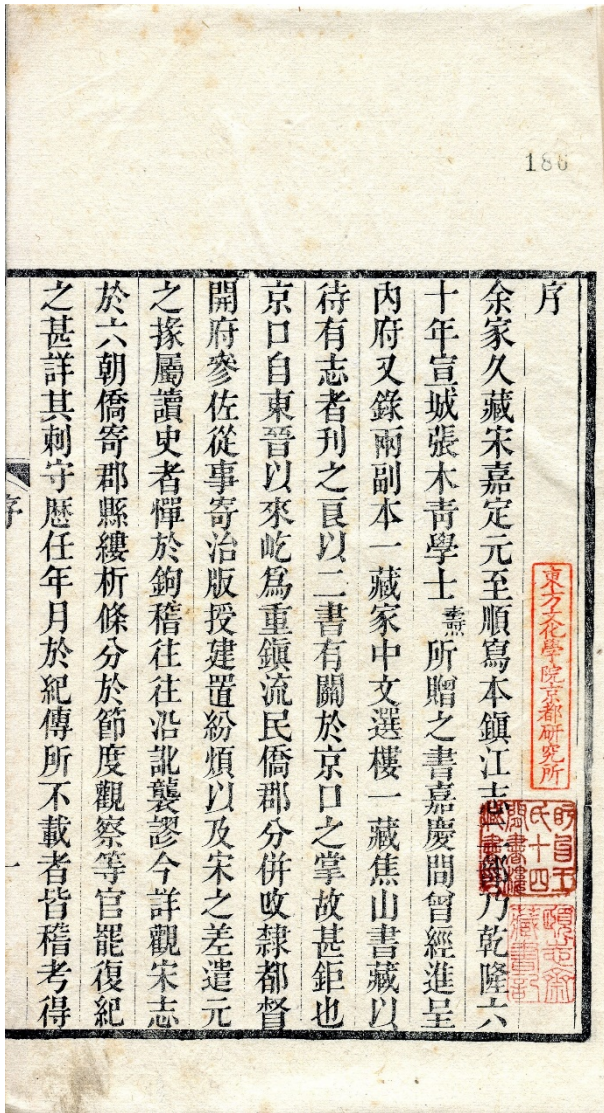 186
序
余家久藏宋嘉定元至順寫本鎮江志乃乾隆六
十年宣城張木青學士燾所贈之書嘉慶間曾經進呈
內府又錄兩副本一藏家中文選樓一藏焦山書藏以
待有志者刊之良以二書有關於京口之掌故甚鉅也
京口自東晉以來屹爲重鎮流民僑郡分併改隸都督
開府參佐從事寄治版授建置紛煩以及宋之差遣元
之掾屬讀史者憚於鉤稽往往沿訛襲謬今詳觀宋志
於六朝僑寄郡縣縷析條分於節度觀察等官罷復紀
之甚詳其刺守歷任年月於紀傳所不載者皆稽考得
序
一
東方文化學院京都研究所
盱眙王
氏十四
閒書樓
藏書
頤志齋
藏書記